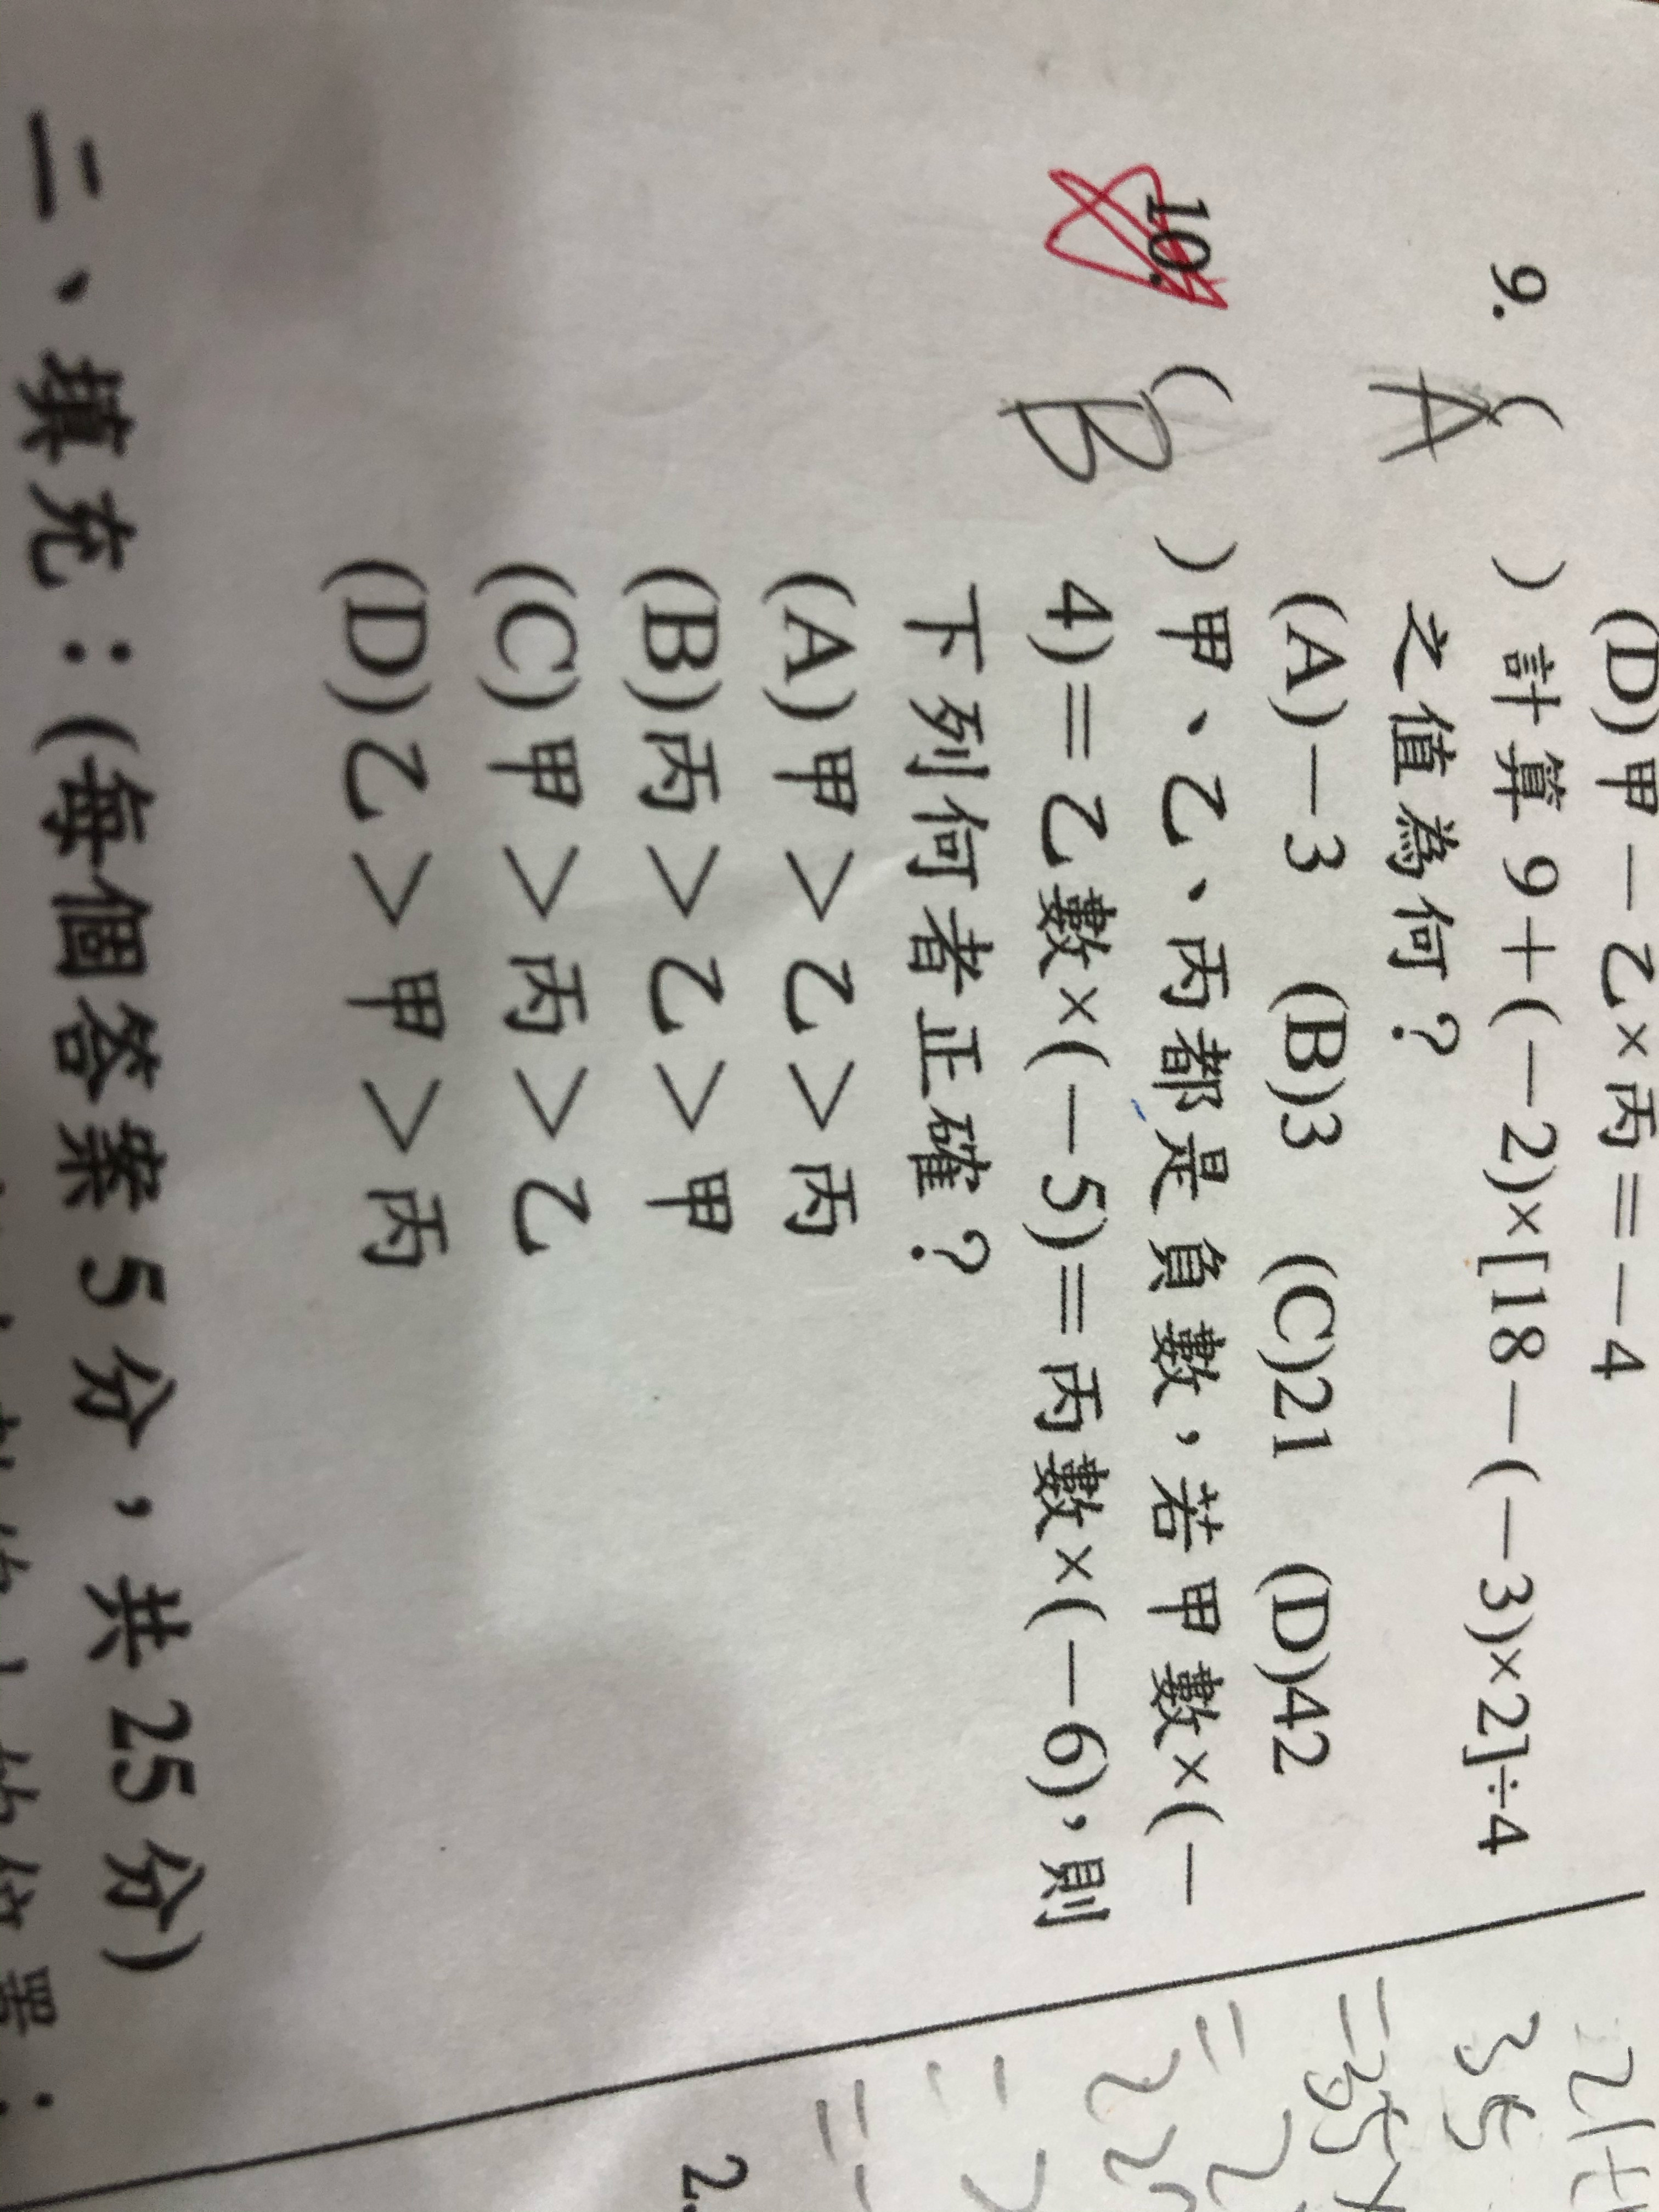 (D)甲－乙×丙＝－4
9. ( A ) 計算 9＋(－2)×[18－(－3)×2]÷4
之值為何？
(A)－3 (B)3 (C)21 (D)42
10. ( B ) 甲、乙、丙都是負數，若甲數×(－
4)＝乙數×(－5)＝丙數×(－6)，則
下列何者正確？
(A)甲＞乙＞丙
(B)丙＞乙＞甲
(C)甲＞丙＞乙
(D)乙＞甲＞丙
二、填充：(每個答案 5 分，共 25 分)
35
2.